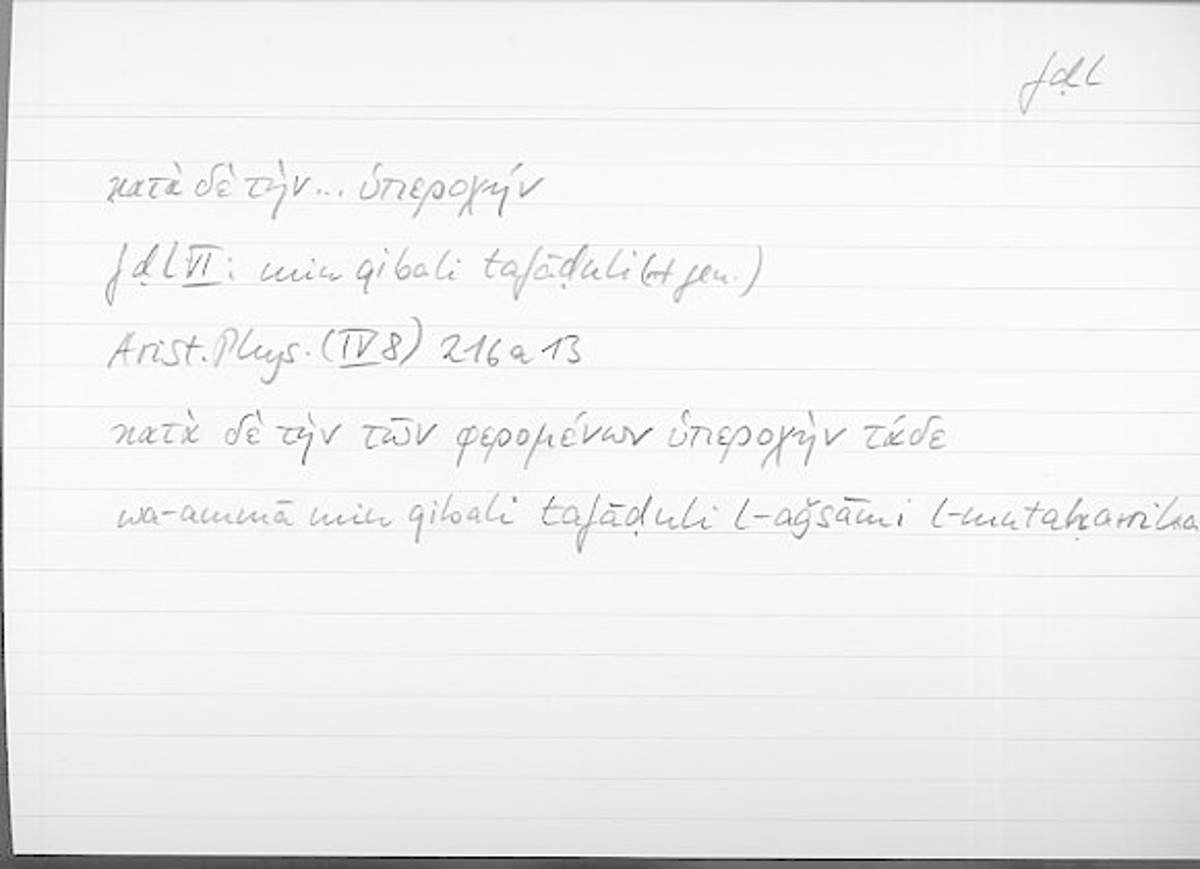 fḍl
κατὰ δὲ τὴν... ὑπεροχήν
fḍl VI: min qibali tafāḍuli (+ gen.)
Arist. Phys. (IV 8) 216 a 13
κατὰ δὲ τὴν τῶν φερομένων ὑπεροχὴν τάδε
wa-ammā min qibali tafāḍuli l-aǧsāmi l-mutaḥarrika